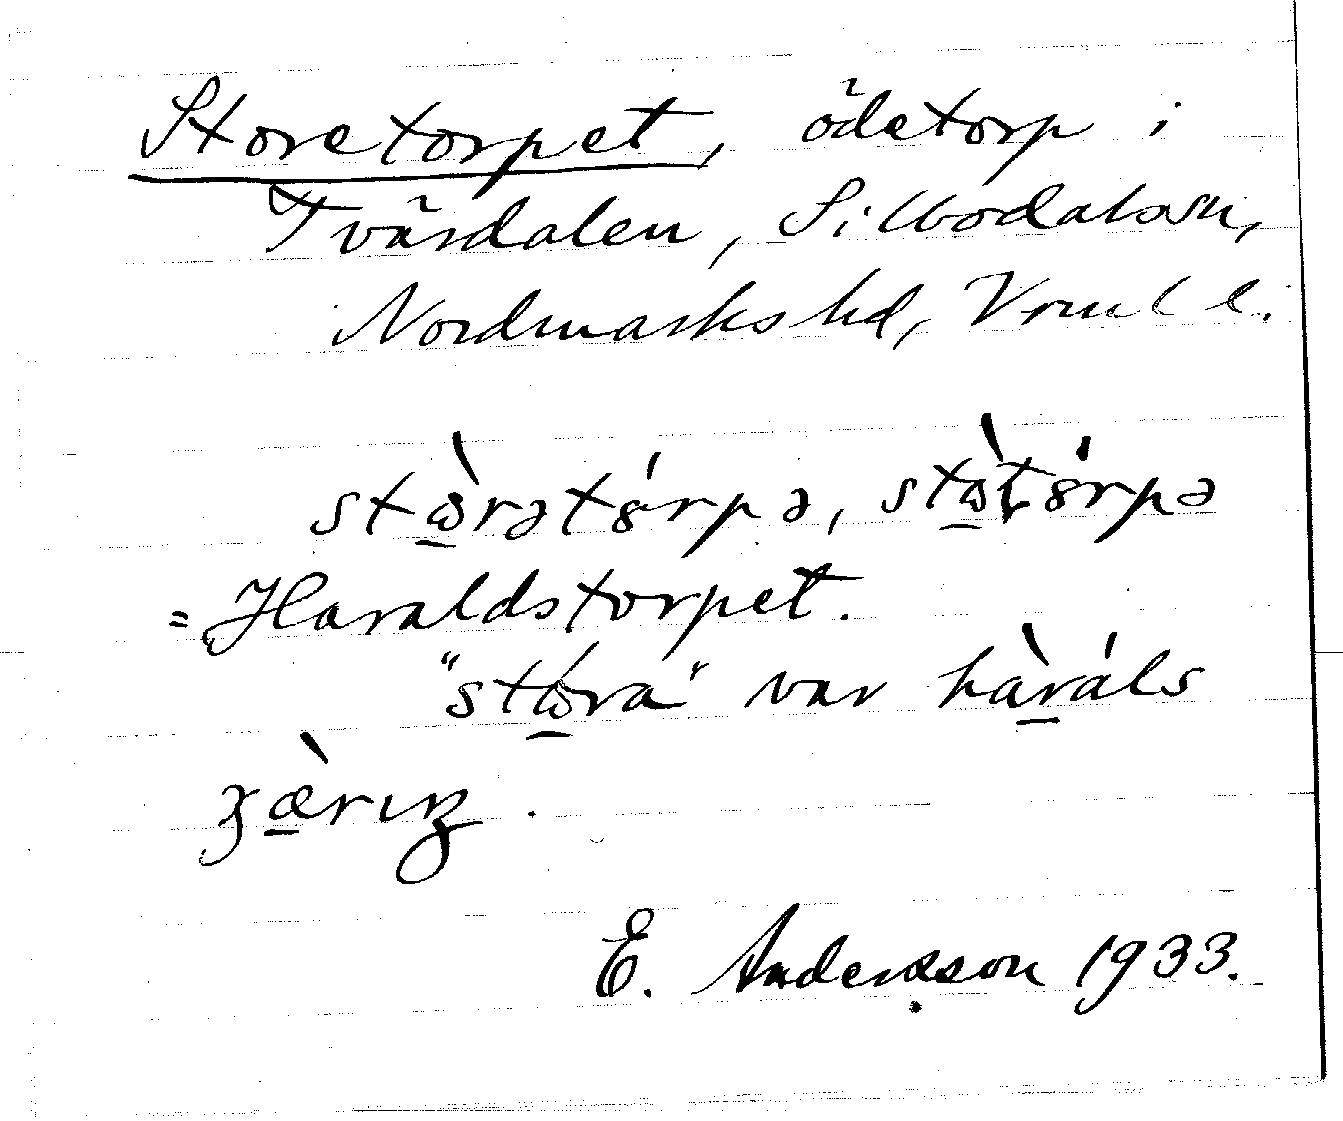 Storetorpet, ödetorp i
Tvärdalen, Silbodals sn,
Nordmarks hd, Vrml l.
stὼ̲rətȣ́rpə, stὼ̲tȣ́rpə
= Haraldstorpet.
"stώ̲ra" var hàr̲áls
ʒæ̲̀rıŋ.
E. Andersson 1933.